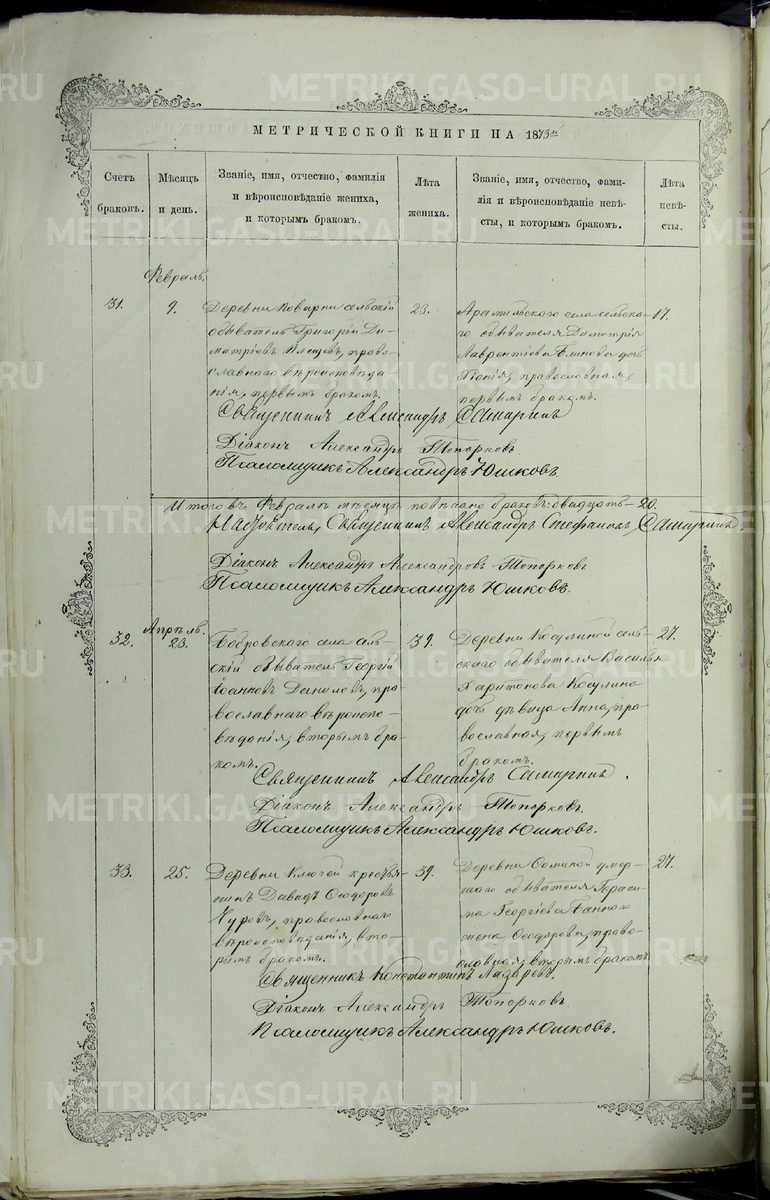 МЕТРИЧЕСКОЙ КНИГИ НА 1873 й
Счетъ браковъ.
Мѣсяцъ и день.
Званіе, имя, отчество, фамилія
и вѣроисповѣданіе жениха,
и которымъ бракомъ.
Лѣта жениха.
Званіе, имя, отчество, фами-
лія и вѣроисповѣданіе невѣ-
сты, и которымъ бракомъ.
Лѣта невѣ-
сты.
Февраль.
31.
9.
Деревни сельскій
обыватель Григорій Ди-
митріевъ Клещевъ, право-
славнаго вѣроисповѣда-
нія, первымъ бракомъ.
23.
Арамильскаго села сельска-
го обывателя Димитрія
Лаврентіева Блинова дочь
православная,
первымъ бракомъ.
17.
Священникъ Александръ Самаринъ
Діаконъ Александръ Топорковъ.
Псаломщикъ Александръ Юшковъ.
Итого въ Февралѣ мѣсяцѣ повѣнчано браковъ двадцать – 20.
Настоятель, Священникъ Александръ Стефановъ Самаринъ
Діаконъ Александръ Александровъ Топорковъ
Псаломщикъ Александръ Юшковъ.
Апрѣль.
32.
23.
Бобровскаго села сель-
скій обыватель Георгій
Іоанновъ Даниловъ, пра-
вославнаго вѣроиспо-
вѣданія, вторымъ бра-
комъ.
39.
Деревни Косулиной сель-
скаго обывателя Василья
Харитонова Косулина
дочь дѣвица Анна, пра-
вославная, первымъ
бракомъ.
27.
Священникъ Александръ Самаринъ.
Діаконъ Александръ Топорковъ.
Псаломщикъ Александръ Юшковъ.
33.
25.
Деревни Ключей крестья-
нинъ Давидъ Ѳеодоровъ
вѣроисповѣданія, вто-
рымъ бракомъ.
православнаго
39.
Деревни умер-
шаго обывателя Гераси-
ма Георгіева Баннаго
жена право-
славная, вторымъ бракомъ.
27.
Священникъ Константинъ Лазаревъ.
Діаконъ Александръ Топорковъ.
Псаломщикъ Александръ Юшковъ.
METRIKI.GASO-URAL.RU